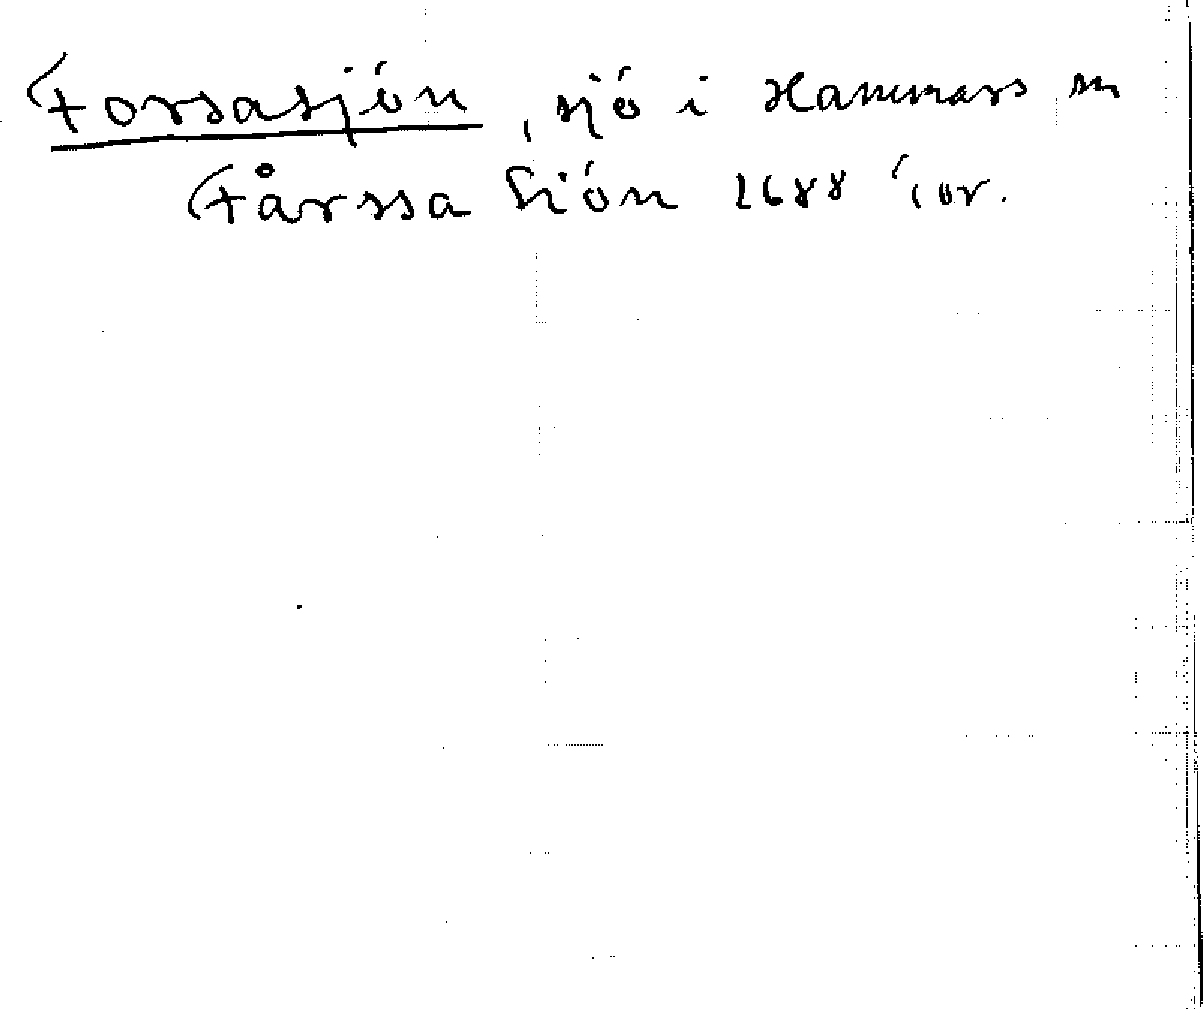 Forsasjön, sjö i Hammars sn
Fårssa Siön 1688 jor.